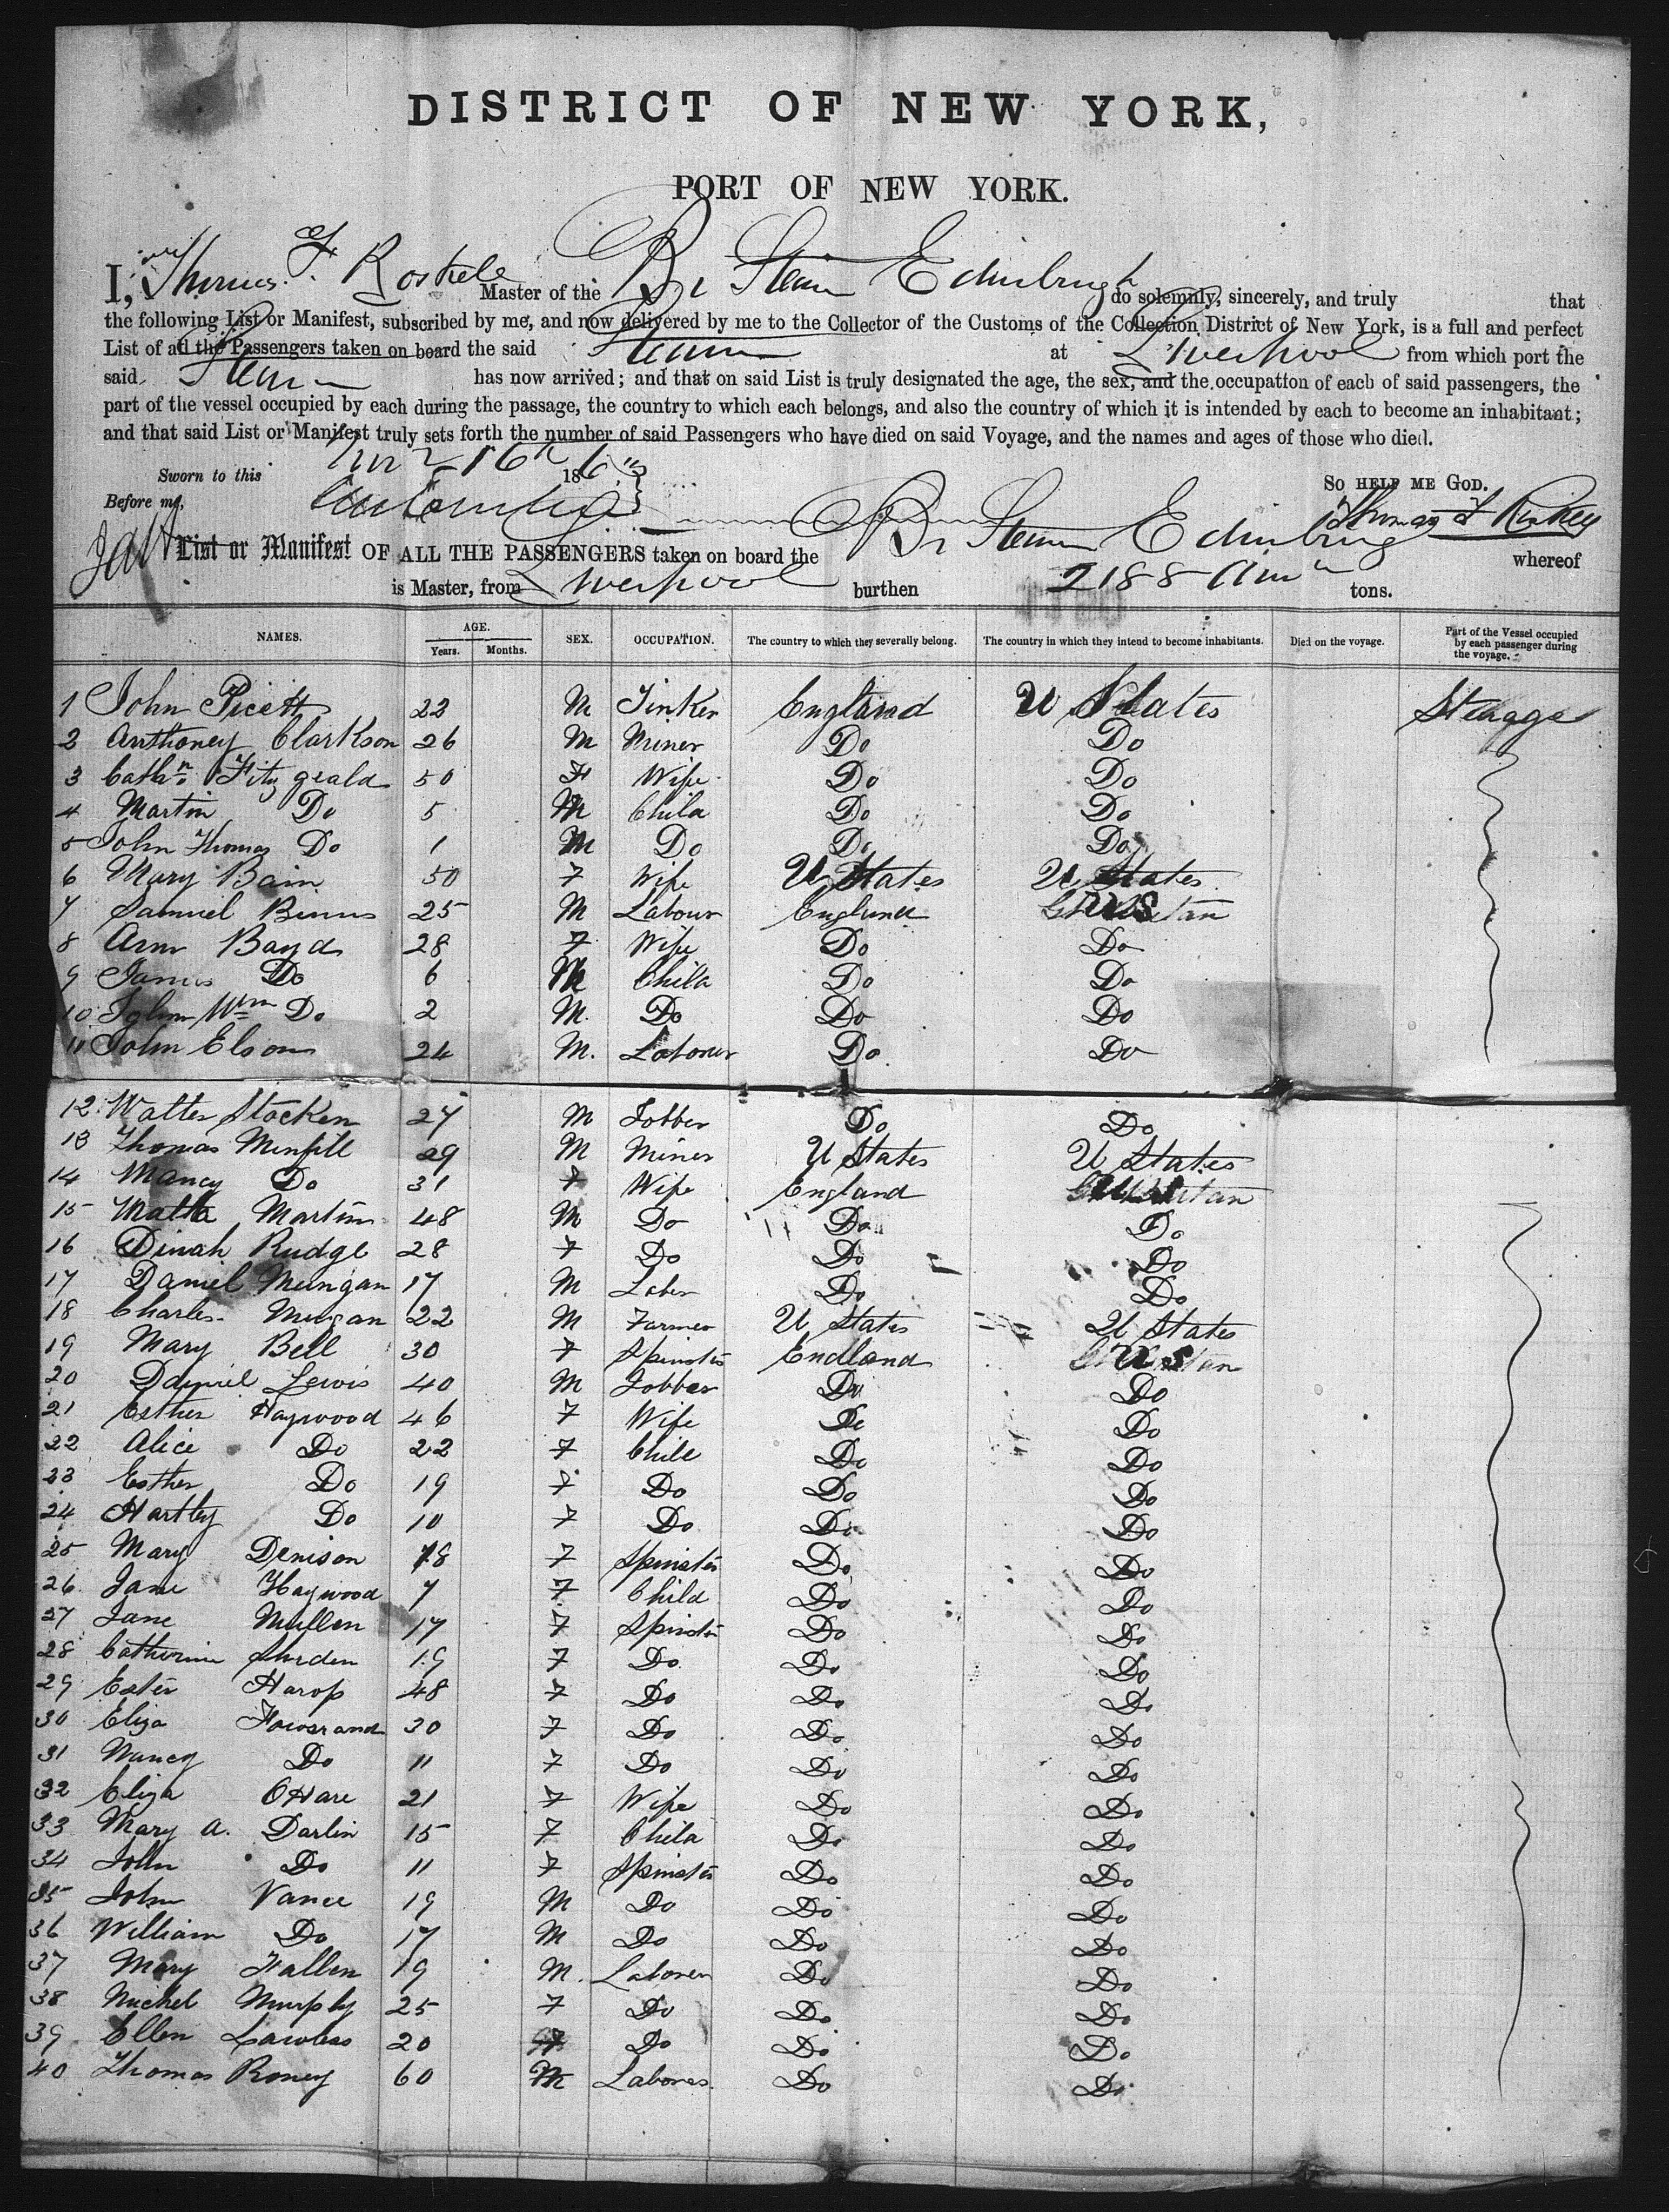 DISTRICT OF NEW YORK,
PORT OF NEW YORK.
I, Thomas F. Roskell Master of the Br Steam Edinburgh do solemnly, sincerely, and truly that
the following List or Manifest, subscribed by me, and now delivered by me to the Collector of the Customs of the Collection District of New York, is a full and perfect
List of all the Passengers taken on board the said Steam at Liverpool from which port the
said Steam has now arrived; and that on said List is truly designated the age, the sex, and the occupation of each of said passengers, the
part of the vessel occupied by each during the passage, the country to which each belongs, and also the country of which it is intended by each to become an inhabitant;
and that said List or Manifest truly sets forth the number of said Passengers who have died on said Voyage, and the names and ages of those who died.
Sworn to this 16 186 SO HELP ME GOD.
Before me,
List or Manifest OF ALL THE PASSENGERS taken on board the Br Steam Edinburg whereof
is Master, from Liverpool burthen 2188 tons.
NAMES. AGE. Years. Months. SEX. OCCUPATION. The country to which they severally belong. The country in which they intend to become inhabitants. Died on the voyage. Part of the Vessel occupied by each passenger during the voyage.
1 John Picett 22 M Tinker England U States Steragge
2 Anthoney Clarkson 26 M Miner Do Do
3 Cathn Fitzgeald 50 F Wife Do Do
4 Martin Do 5 M Chila Do Do
5 John Thomas Do 1 M Do Do Do
6 Mary Bain 50 F Wife U States U States
7 Samuel Binns 25 M Labour England US
8 Ann Bayd 28 F Wife Do Do
9 James Do 6 M Chila Do Do
10 John Wm Do 2 M. Do Do Do
11 John Elson 24 M. Laborer Do Do
12 Walter Stocken 27 M Jobber Do Do
13 Thomas Minfill 29 M Miner U States U States
14 Nancy Do 31 F Wife England
15 Martin 48 M Do Do Do
16 Dinah Rudge 28 F Do Do Do
17 Daniel Mungan 17 M Laber Do Do
18 Charles Mungan 22 M Farmer U States U States
19 Mary Bell 30 F Spinster Endland US
20 Daniel Lewis 40 M Jobber Do Do
21 Esther Haywood 46 F Wife Do Do
22 Alice Do 22 F Chile Do Do
23 Esther Do 19 F Do Do Do
24 Hartley Do 10 F Do Do Do
25 Mary Denison 18 F Spinster Do Do
26 Jane Haywood 7 F Child Do Do
27 Jane Mullen 17 F Spinster Do Do
28 Catherine 19 F Do Do Do
29 Ester Harop 48 F Do Do Do
30 Eliza Fowsrand 30 F Do Do Do
31 Nancy Do 11 F Do Do Do
32 Eliza OHare 21 F Wife Do Do
33 Mary A. Darlin 15 F Chila Do Do
34 John Do 11 F Spinster Do Do
35 John Vance 19 M Do Do Do
36 William Do 17 M Do Do Do
37 Mary Fallen 19 M. Laborer Do Do
38 Michel Murphy 25 F Do Do Do
39 Ellen Lawless 20 F Do Do Do
40 Thomas Roney 60 M Laborer Do Do